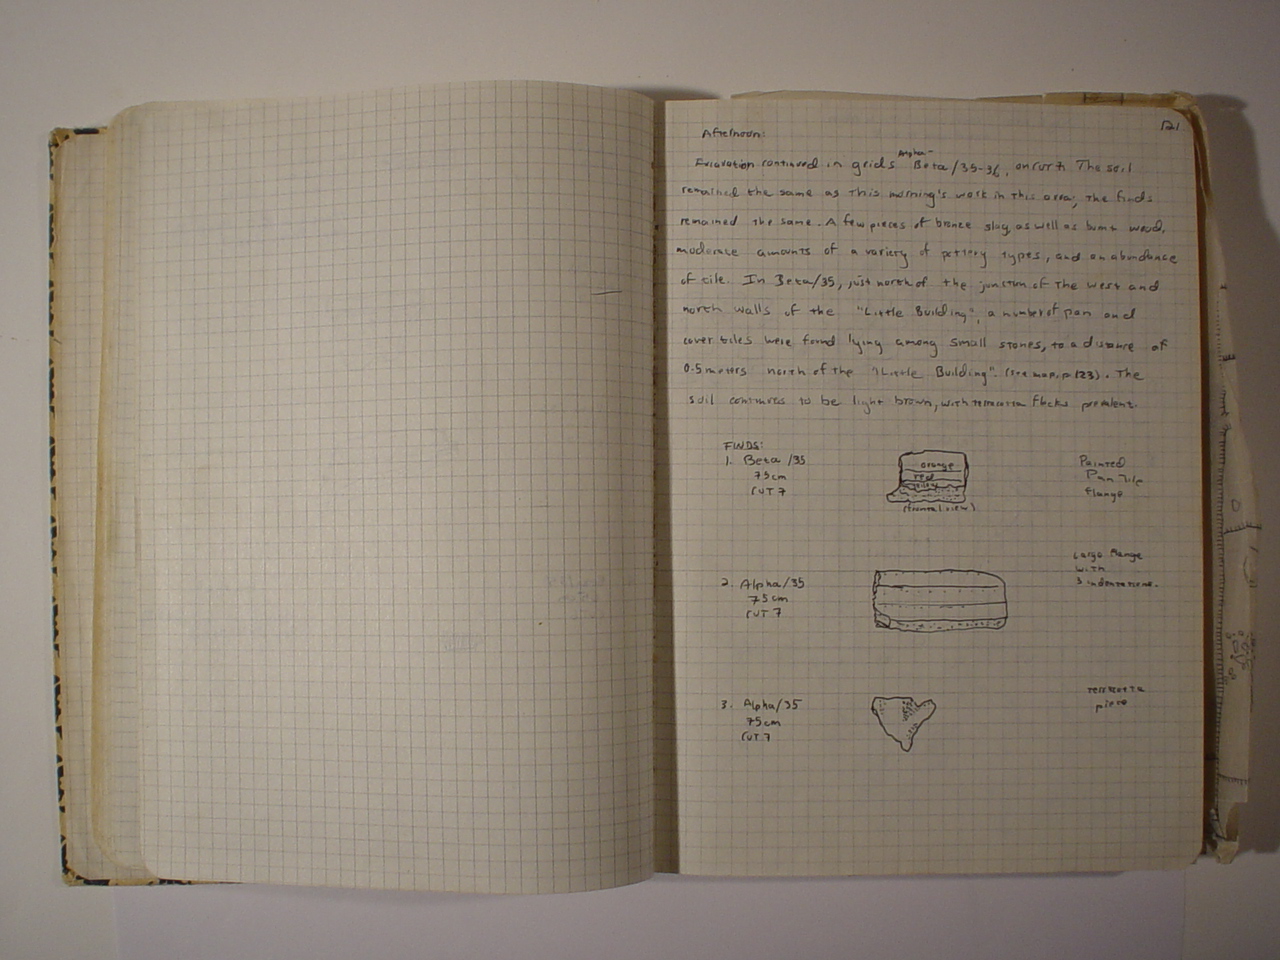 121
Afternoon:
Alpha-
Excavation continued in grids Beta/35-36, on CUT 7. The soil
remained the same as this morning's work in this area; the finds
remained the same. A few pieces of bronze slag, as well as burnt wood,
moderate amounts of a variety of pottery types, and an abundance
of tile. In Beta/35, just north of the junction of the west and
north walls of the "Little Building", a number of pan and
cover tiles were found lying among small stones, to a distance of
0.5 meters north of the "Little Building". (see map, p 123). The
soil continues to be light brown, with terracotta flecks prevalent.
FINDS:
1. Beta /35
75cm
CUT 7
orange
red
(frontal view)
Painted
Pan Tile
flange
2. Alpha/35
75cm
CUT 7
Large flange
with
3 indentations.
3. Alpha/35
75cm
CUT 7
terracotta
piece